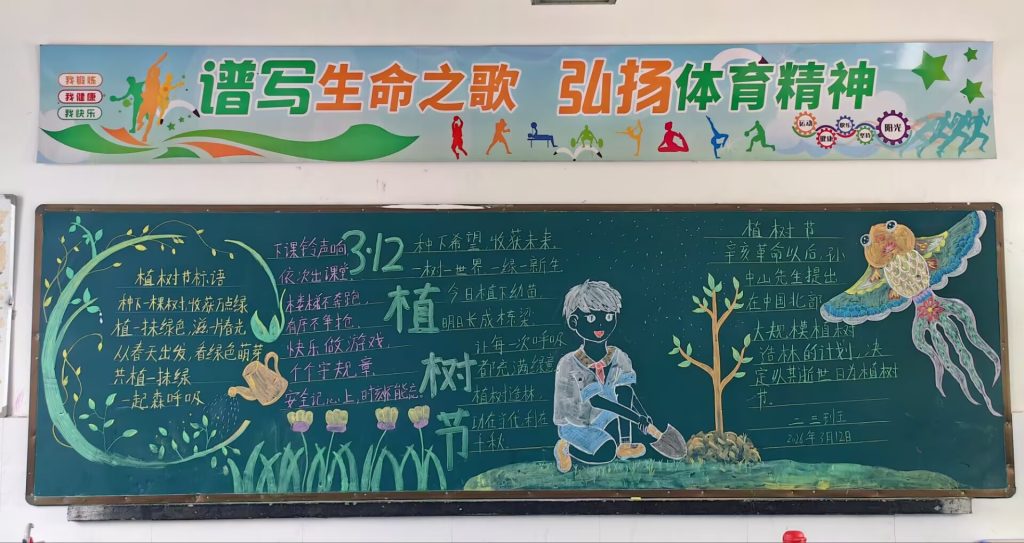 我锻炼
我健康
我快乐
谱写生命之歌 弘扬体育精神
运动
健康
快乐
坚持
阳光
植树节标语
种下一棵树,收获万点绿
植一抹绿色,滋一片春光
从春天出发,看绿色萌芽
共植一抹绿
一起森呼吸
下课铃声响
依次出课堂
楼梯不奔跑,
有序不争抢.
快乐做游戏
个个守规章
安全记心上,时刻都能忘
3·12
植
树
节
种下希望 收获未来,
一树一世界 一绿一新生
今日植下幼苗,
明日长成栋梁
让每一次呼吸
都充满绿意
植树造林,
功在当代,利在
千秋.
植树节
辛亥革命以后,孙
中山先生提出
在中国北部
大规模植树
造林的计划,决
定以其逝世日为植树
节.
二三到五
2026年3月12日